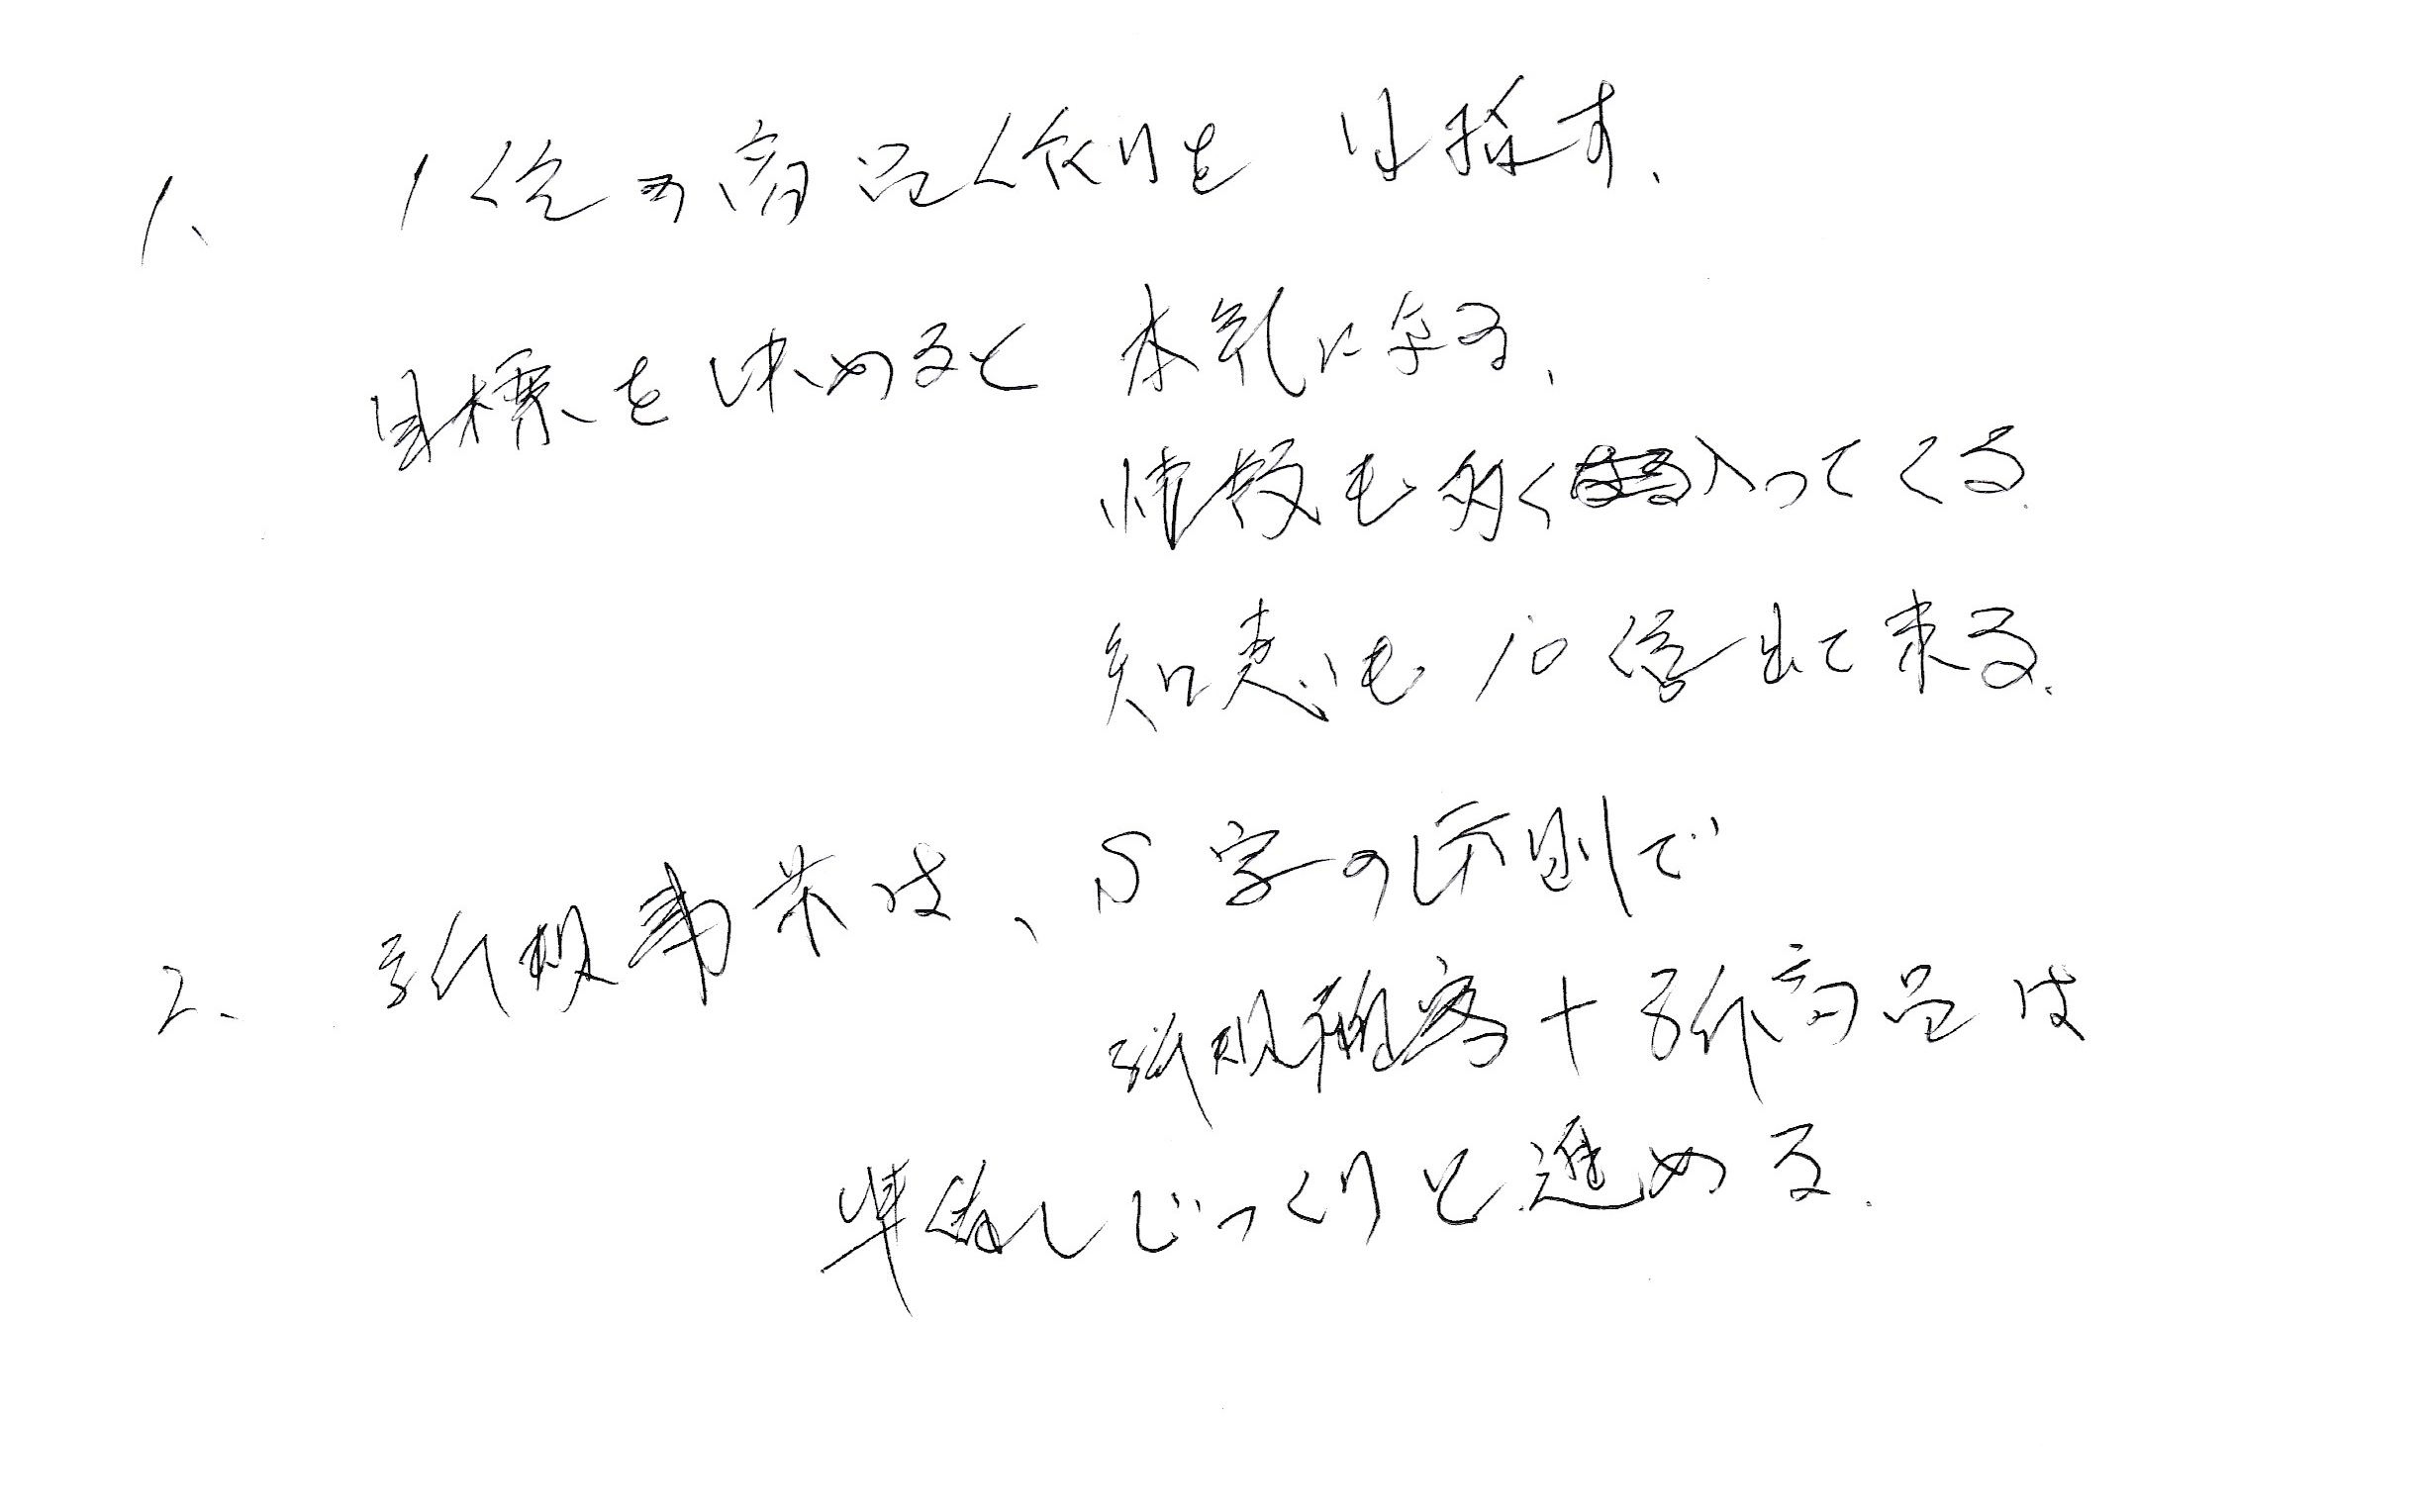 1、 1億の商品作りを目指す、
目標を決めると 本気になる、
情報も多く入ってくる.
知恵も 10倍出て来る.
2、 新規事業は、S字の原則で
新規顧客+新商品は
準備しじっくりと進める.